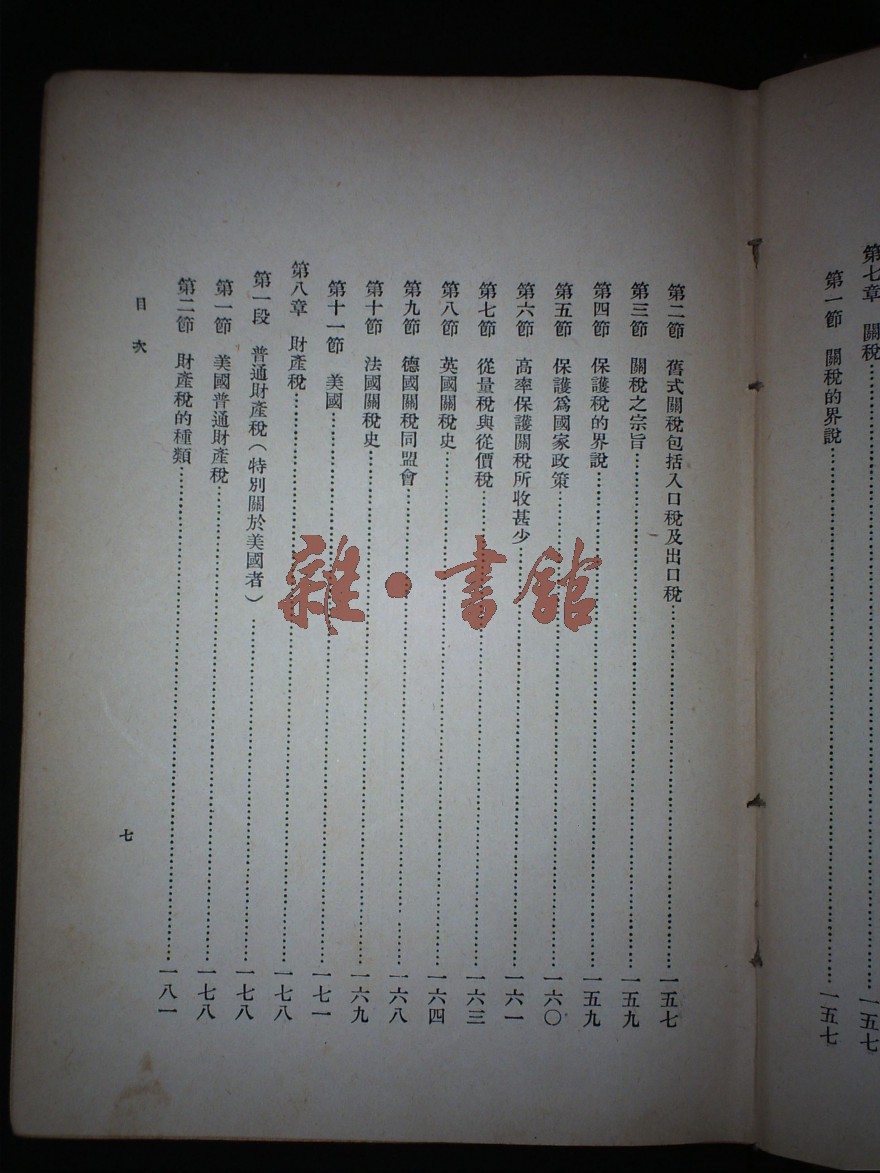 第七章　關稅……一五七
第一節　關稅的界說……一五七
第二節　舊式關稅包括入口稅及出口稅……一五七
第三節　關稅之宗旨……一五九
第四節　保護稅的界說……一五九
第五節　保護爲國家政策……一六〇
第六節　高率保護關稅所收甚少……一六一
第七節　從量稅與從價稅……一六三
第八節　英國關稅史……一六四
第九節　德國關稅同盟會……一六八
第十節　法國關稅史……一六九
第十一節　美國……一七一
第八章　財產稅……一七八
第一段　普通財產稅（特別關於美國者）……一七八
第一節　美國普通財產稅……一七八
第二節　財產稅的種類……一八一
目次
七
雜·書館